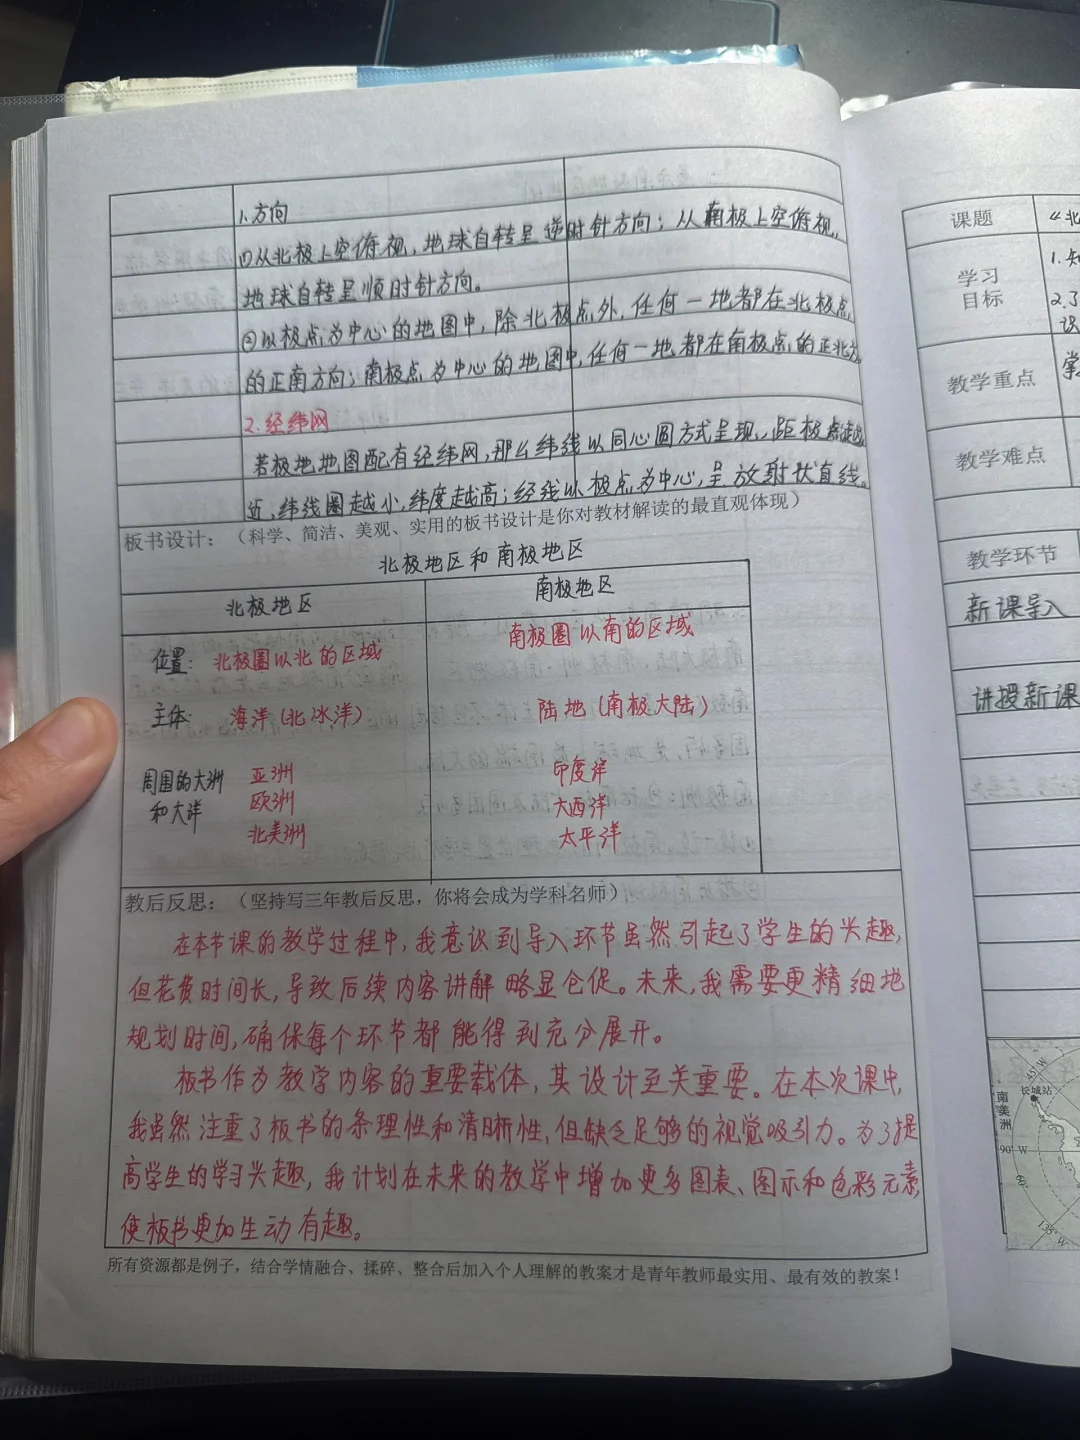 1.方向
①从北极上空俯视,地球自转呈逆时针方向;从南极上空俯视,
地球自转呈顺时针方向。
②以极点为中心的地图中,除北极点外,任何一地都在北极点
的正南方向;南极点为中心的地图中,任何一地都在南极点的正北方
2.经纬网
若极地地图配有经纬网,那么纬线以同心圆方式呈现,距极点越
近,纬线圈越小,纬度越高;经线以极点为中心,呈放射状直线。
板书设计:(科学、简洁、美观、实用的板书设计是你对教材解读的最直观体现)
北极地区和南极地区
北极地区 南极地区
位置: 北极圈以北的区域 南极圈以南的区域
主体: 海洋(北冰洋) 陆地(南极大陆)
周围的大洲 亚洲 印度洋
和大洋 欧洲 大西洋
北美洲 太平洋
教后反思:(坚持写三年教后反思,你将会成为学科名师)
在本节课的教学过程中,我意识到导入环节虽然引起了学生的兴趣,
但花费时间长,导致后续内容讲解略显仓促。未来,我需要更精细地
规划时间,确保每个环节都能得到充分展开。
板书作为教学内容的重要载体,其设计至关重要。在本次课中,
我虽然注重了板书的条理性和清晰性,但缺乏足够的视觉吸引力。为了提
高学生的学习兴趣,我计划在未来的教学中增加更多图表、图示和色彩元素,
使板书更加生动有趣。
所有资源都是例子,结合学情融合、揉碎、整合后加入个人理解的教案才是青年教师最实用、最有效的教案!
课题 "北
学习
目标
1.知
2.了
识
教学重点 掌
教学难点
教学环节
新课导入
讲授新课
南美洲
长城站
45°W
90°W
135°W